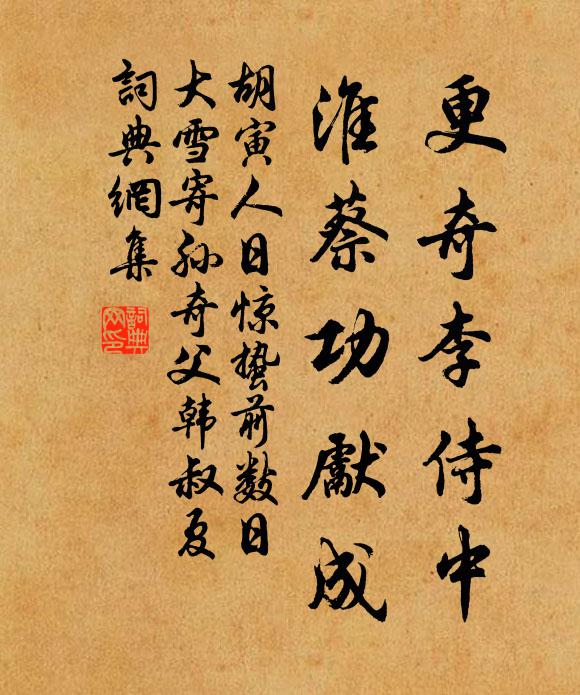 更奇李侍中
淮蔡功獻成
胡寅人日惊蛰前数日
大雪寄孙奇父韩叔夏
詞典網集
詞典網印